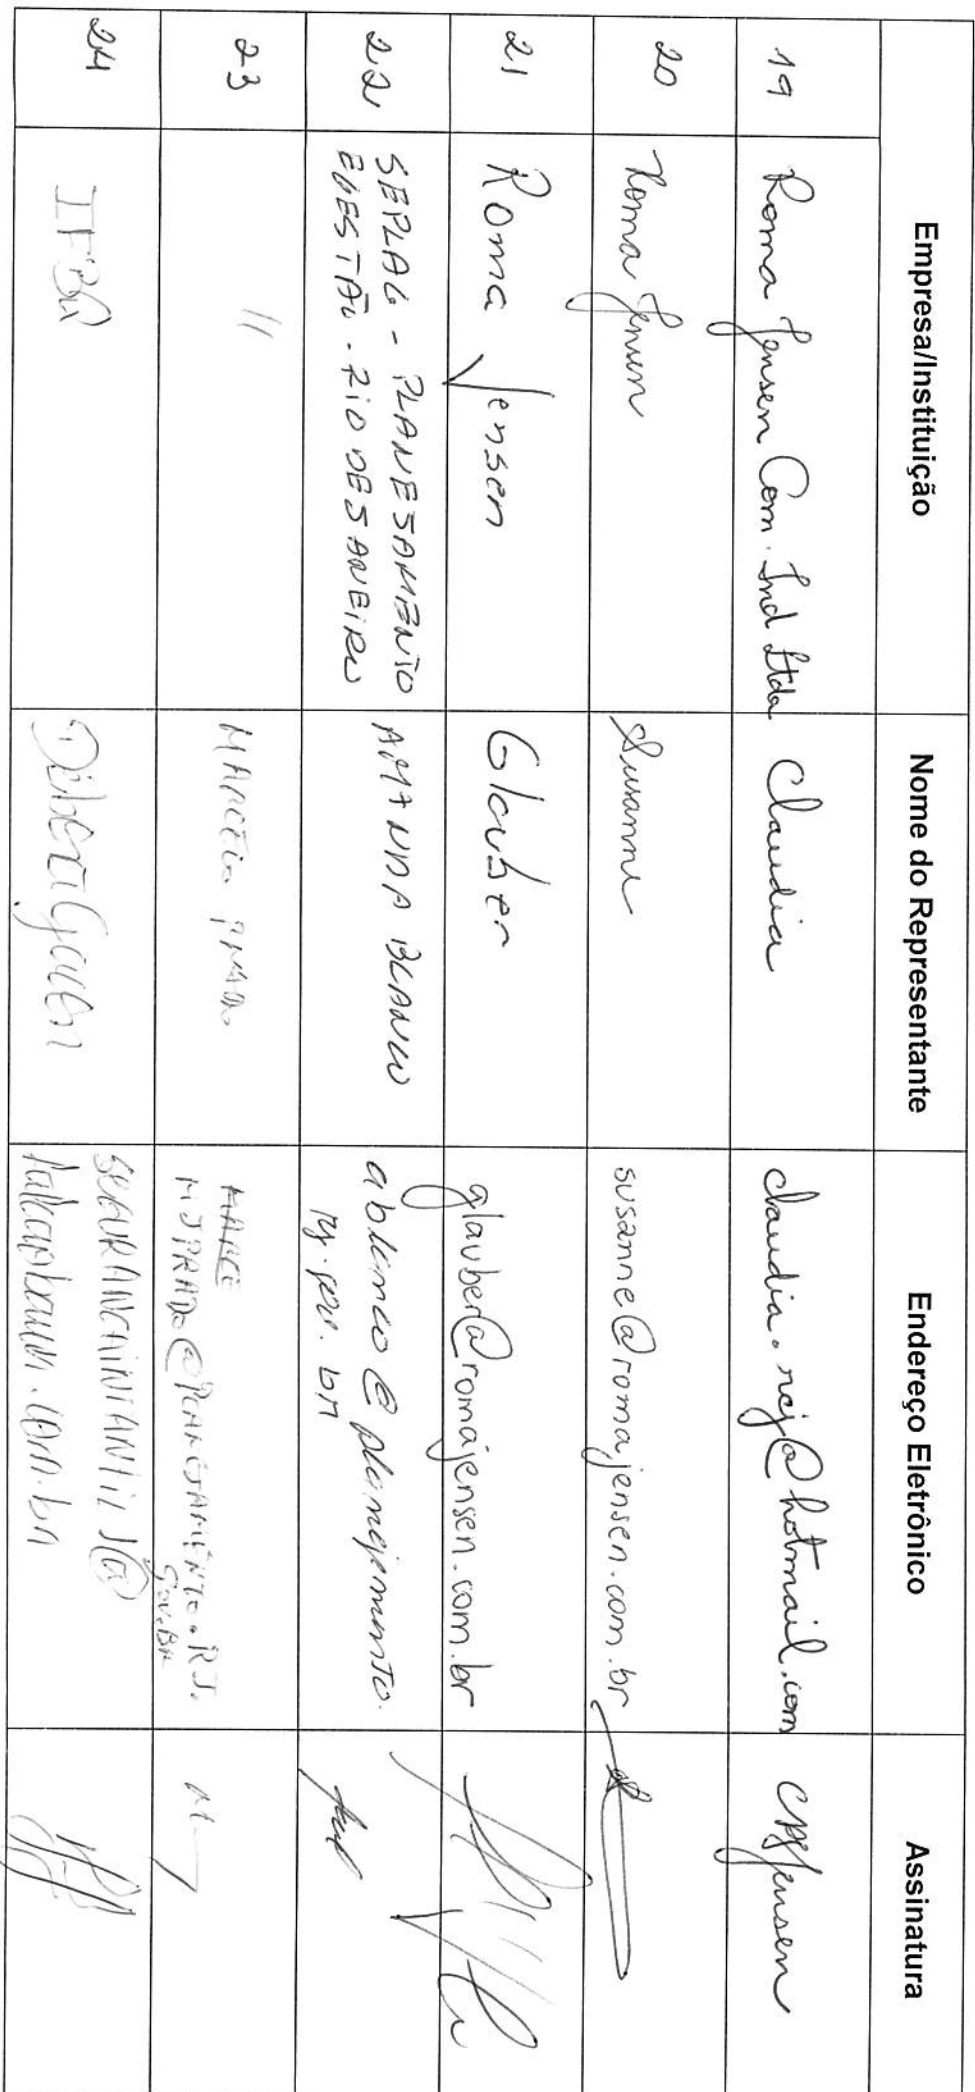 Empresa/Instituição Nome do Representante Endereço Eletrônico Assinatura
19 Roma Jensen Com. Ind Ltda Claudia claudia.rcj@hotmail.com
20 Roma Jensen Susanne susanne@romajensen.com.br
21 Roma Jensen Glauber glauber@romajensen.com.br
22 SEPLAG - PLANEJAMENTO
E GESTÃO - RIO DE JANEIRO AMANDA BLANCO ablanco@planejamento.
rj.gov.br
23 " MARCEIO PRADO MARCE
MJPRADO@PLANEJAMENTO.RJ.
GOV.BR
24